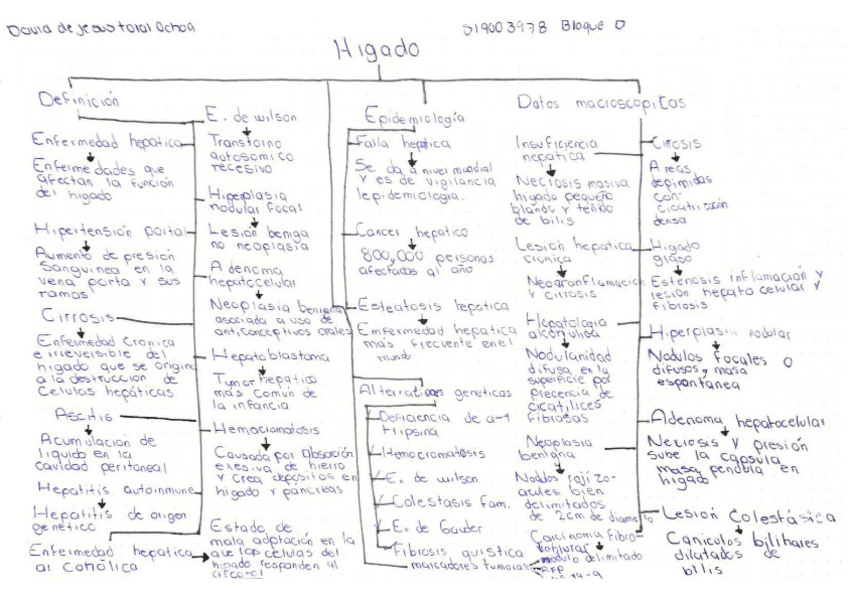 David de Jesus toral Ochoa
S19003978 Bloque 0
Higado
Definición
Enfermedad hepatica
Enfermedades que
afectan la función
del higado
Hipertensión portal
Aumento de presión
Sanguinea en la
vena porta y sus
ramas
Cirrosis
Enfermedad Cronica
e irreversible del
higado que se origina
a la destrucción de
Celulas hepáticas
Ascitis
Acumulación de
liquido en la
cavidad peritoneal
Hepatitis autoinmune
Hepatitis de origen
genético
Enfermedad hepatica
al cohólica
Estado de
mala adptación en la
que las celulas del
higado responden al
E. de wilson
Transtorno
autosomico
recesivo
Hiperplasia
nodular focal
Lesión beniga
no neoplasia
Adenoma
hepatocelular
Neoplasia benigna
asociada a uso de
anticonceptivos orales
Hepatoblastoma
Tumor hepatico
más comun de
la infancia
Hemocromatosis
Causada por absorción
exesiva de hierro
y crea depósitos en
higado y pancreas
Epidemiología
Falla hepatica
Se da a nivel mundial
y es de vigilancia
epidemiologia.
Cancer hepatico
800,000 personas
afectados al año
Esteatosis hepatica
Emfermedad hepatica
más frecuente en el
mundo
Alterrations geneticas
Deficiencia de a-1
tripsina
Hemocromatosis
E. de wilson
Colestasis Fam.
E. de Gauder
Fibrosis quistica
marcadores tumorales
Datos macroscopicos
Insuficiencia
hepatica
Necrosis masiva
higado pequeño
blando y teñido
de bilis
Lesion hepatica
cronica
y cirrosis
Hepatologia
alcoholica
Nodularidad
difusa en la
superficie por
precencia de
cicatilices
fibrosas
Neoplasia
benigna
Nodulos rojizo-
acules bien
delimitados
de 2cm de diametro
Carcinoma Fibro-
nodulo delimitado
Cirrosis
Areas
depimidas
con
cicatrización
densa
Higado
graso
Estenosis inflamación y
lesion hepato celular y
fibrosis
Hiperplasia nodular
Nodulos focales o
difusos y masa
espontanea
Adenoma hepatocelular
Necrosis y presión
sube la capsula
masa pendula en
higado
Lesión Colestásica
Canicolos bilihares
dilatados de
bilis